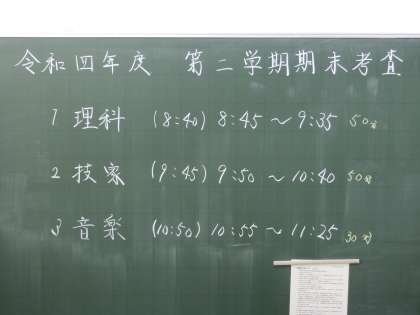 令和四年度 第二学期期末考査
1 理科 (8:40) 8:45 〜 9:35 50分
2 技家 (9:45) 9:50 〜 10:40 50分
3 音楽 (10:50) 10:55 〜 11:25 30分